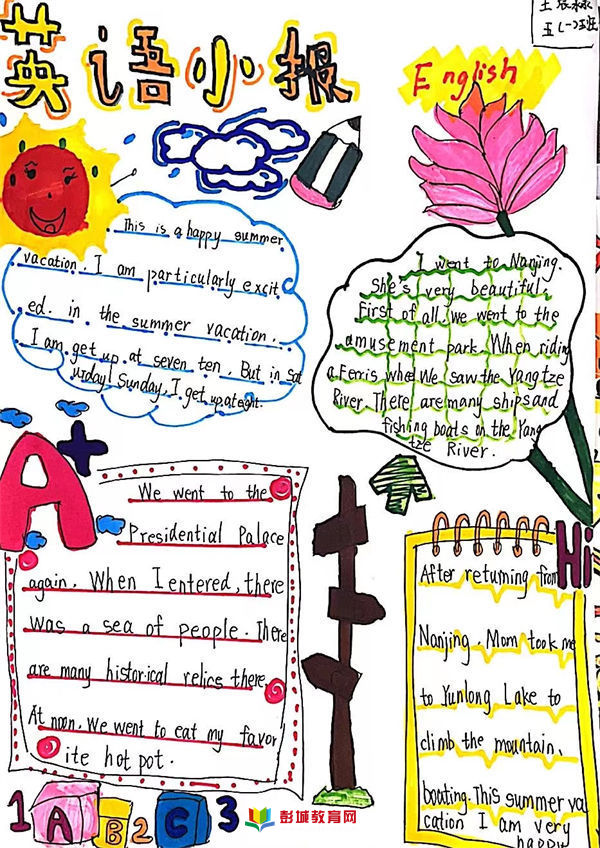 英语小报
English
五(一)班
This is a happy summer
vacation. I am particularly excit
ed. in the summer vacation.
I am get up at seven ten. But in sat
urday! Sunday, I get up at eight.
I went to Nanjing.
She's very beautiful.
First of all, we went to the
amusement park. When riding
a Ferris whee We saw the Yangtze
River. There are many ships and
fishing boats on the Yang
tze River.
A+
We went to the
Presidential Palace
again. When I entered, there
was a sea of people. There
are many historical relics there.
At noon. We went to eat my favor
ite hot pot.
Hi
After returning from
Nanjing. Mom took me
to Yunlong Lake to
climb the mountain.
boating. This summer va
cation I am very
happy
1 A B 2 C 3
彭城教育网